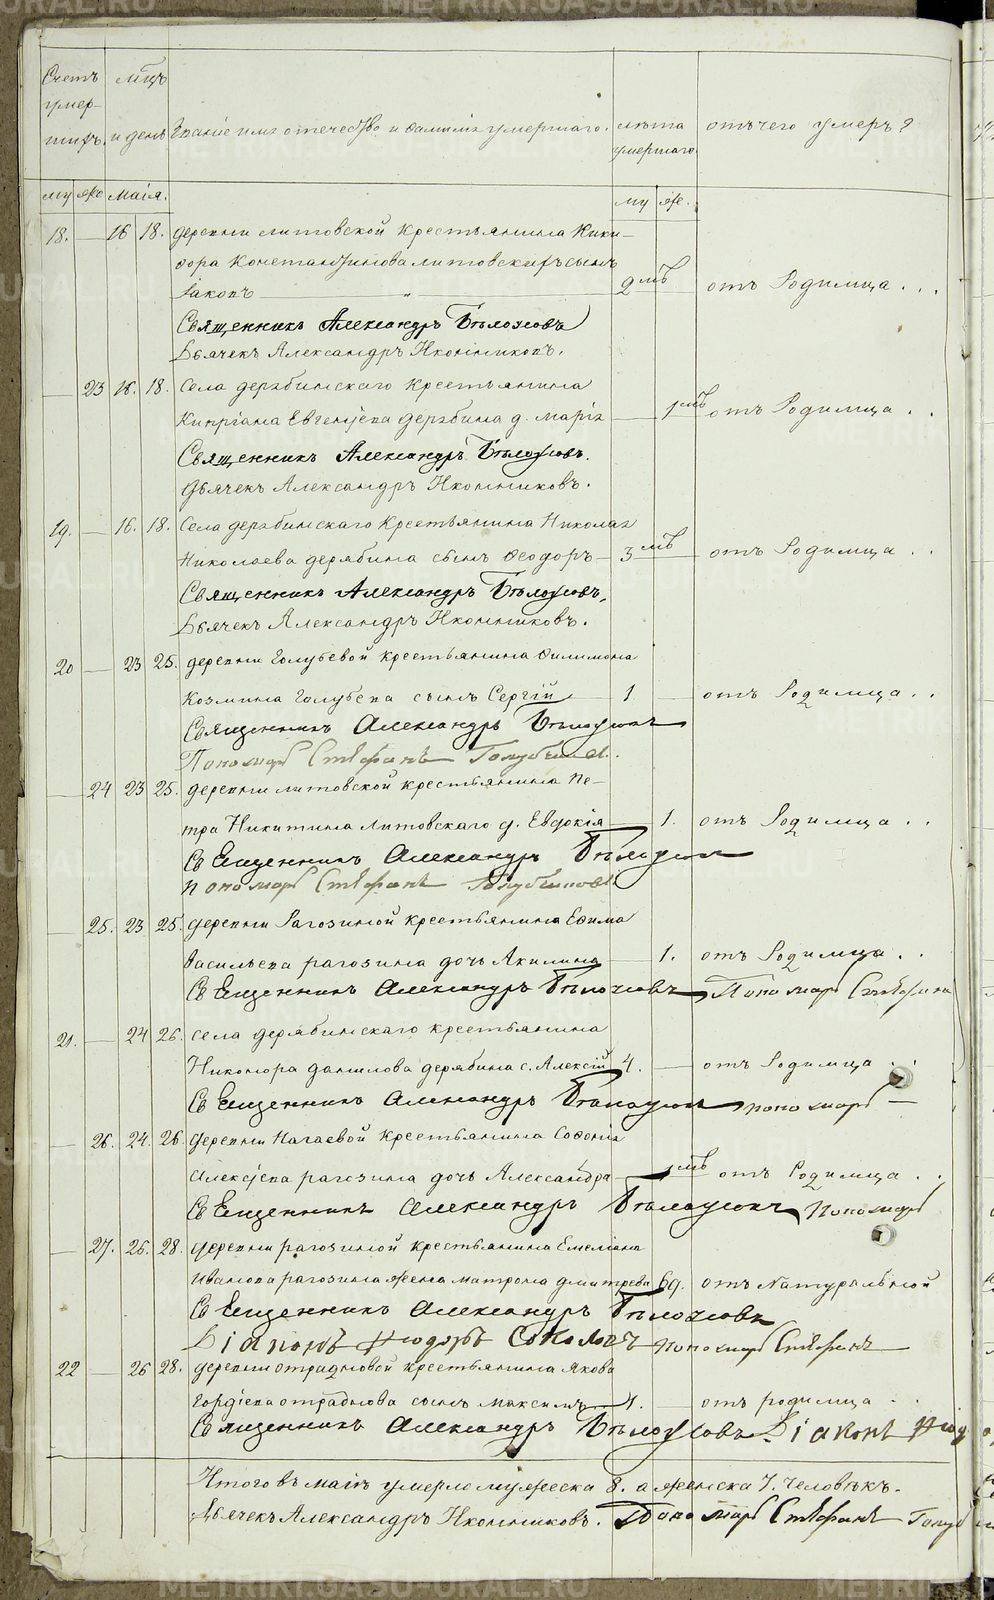 METRIKI.GASU-URAL.RU
Счетъ умер-шихъ. мцъ и день Званіе имя отечество и фамилія умершаго. лѣта умершаго отъ чего умеръ?
му же маія. му же.
18. — 16 18. деревни литовской Крестьянина Ники-
фора Константинова литовскихъ сынъ
Іаковъ — " — 2 мѣ отъ Родимца . . .
Священникъ Александръ Бѣлоусовъ
Дьячекъ Александръ Иконниковъ.
— 23 16. 18. Села дерябинскаго Крестьянина
Кипріана Евгеніева дерябина д. марія — 1 мѣ отъ Родимца . .
Священникъ Александръ Бѣлоусовъ.
Дьячекъ Александръ Иконниковъ.
19. — 16. 18. Села дерябинскаго Крестьянина Николая
Николаева дерябина сынъ Феодоръ — 3 мѣ — отъ Родимца . .
Священникъ Александръ Бѣлоусовъ,
Дьячекъ Александръ Иконниковъ.
20 — 23 25. деревни Голубевой крестьянина Филимона
Козмина Голубева сынъ Сергій — 1 — отъ Родимца . .
Священникъ Александръ Бѣлоусовъ
Пономарь Стефанъ
— 24 23 25. деревни литовской крестьянина Пе-
тра Никитина литовскаго д. Евдокія — 1. отъ Родимца . .
Священникъ Александръ Бѣлоусовъ
пономарь Стефанъ
— 25. 23 25. деревни Рагозиной крестьянина Ефима
Васильева рагозина дочь Акилина — 1. отъ Родимца . .
Священникъ Александръ Бѣлоусовъ Пономарь Стефанъ
21. — 24 26. села дерябинскаго крестьянина
Никонора данилова дерябина с. Алексій 4. — отъ Родимца . .
Священникъ Александръ Бѣлоусовъ пономарь —
— 26. 24. 26. деревни Нагаевой крестьянина Софонія
Алексіева рагозина дочь Александра — 1 мѣ отъ Родимца . .
Священникъ Александръ Бѣлоусовъ Пономарь
— 27. 26. 28. деревни рагозиной крестьянина Емеліана
Иванова рагозина жена матрона дмитрева 69. отъ Натуральной
Священникъ Александръ Бѣлоусовъ
Діаконъ Соколовъ пономарь Стефанъ
22 — 26 28. деревни отрадновой крестьянина Якова
Гордіева отраднова сынъ Максимъ — 1. отъ родимца . .
Священникъ Александръ Бѣлоусовъ Діаконъ
Итого въ маіѣ умерло мужеска 8. а женска 7. человѣкъ.
Дьячекъ Александръ Иконниковъ. Пономарь Стефанъ